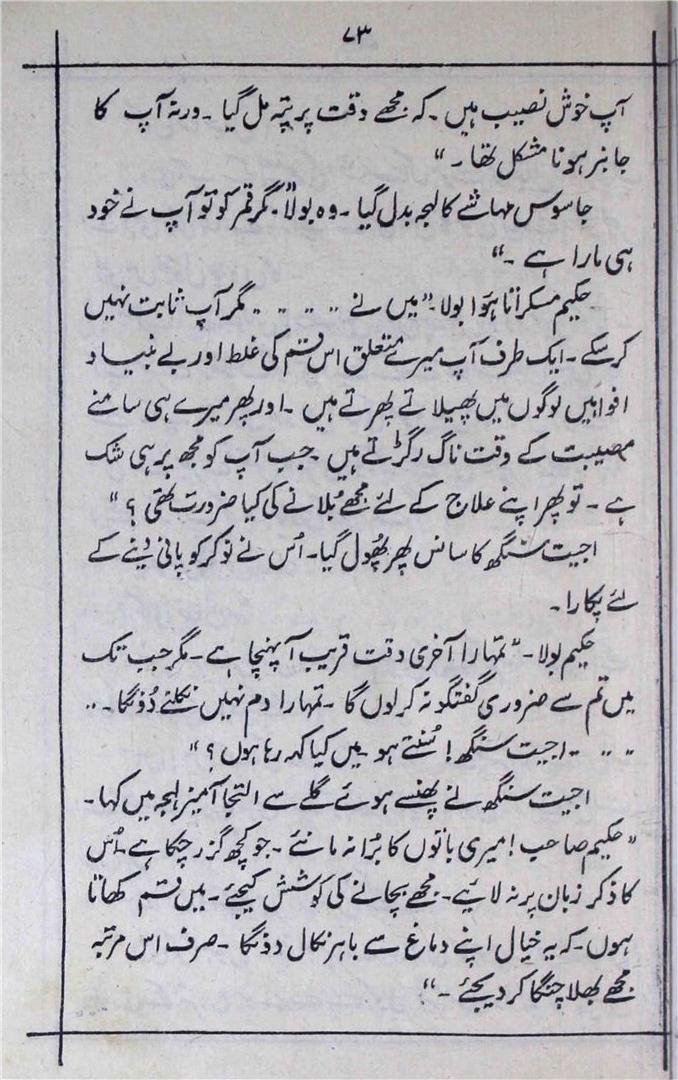 ۷۳
آپ خوش نصیب ہیں۔ کہ مجھے وقت پر پتہ مل گیا۔ ورنہ آپ کا
جانبر ہونا مشکل تھا۔"
جاسوس مہاشے کا لہجہ بدل گیا۔ وہ بولا "۔ مگر قمر کو تو آپ نے خود
ہی مارا ہے۔"
حکیم مسکراتا ہؤا بولا۔ "میں نے ۔۔ ۔۔ ۔ ۔ مگر آپ ثابت نہیں
کر سکے۔ ایک طرف آپ میرے متعلق اس قسم کی غلط اور بے بنیاد
افواہیں لوگوں میں پھیلاتے پھرتے ہیں۔ اور پھر میرے ہی سامنے
مصیبت کے وقت ناگ رگڑتے ہیں۔ جب آپ کو مجھ پر ہی شک
ہے۔ تو پھر اپنے علاج کے لئے مجھے بُلانے کی کیا ضرورت تھی؟"
اجیت سنگھ کا سانس پھر پھُول گیا۔ اُس نے نوکر کو پانی دینے کے
لئے پکارا۔
حکیم بولا۔ "تمہارا آخری وقت قریب آ پہنچا ہے۔ مگر جب تک
میں تم سے ضروری گفتگو نہ کر لوں گا۔ تمہارا دم نہیں نکلنے دُونگا۔ ۔۔
۔۔ ۔ ۔۔ اجیت سنگھ! سُنتے ہو۔ میں کیا کہہ رہا ہوں؟"
اجیت سنگھ نے پھنسے ہوئے گلے سے التجا آمیز لہجہ میں کہا۔
"حکیم صاحب! میری باتوں کا بُرا نہ مانئے۔ جو کچھ گزر چکا ہے۔ اُس
کا ذکر زبان پر نہ لائیے۔ مجھے بچانے کی کوشش کیجئے۔ میں قسم کھاتا
ہوں۔ کہ یہ خیال اپنے دماغ سے باہر نکال دونگا۔ صرف اس مرتبہ
مجھے بھلا چنگا کر دیجئے۔"